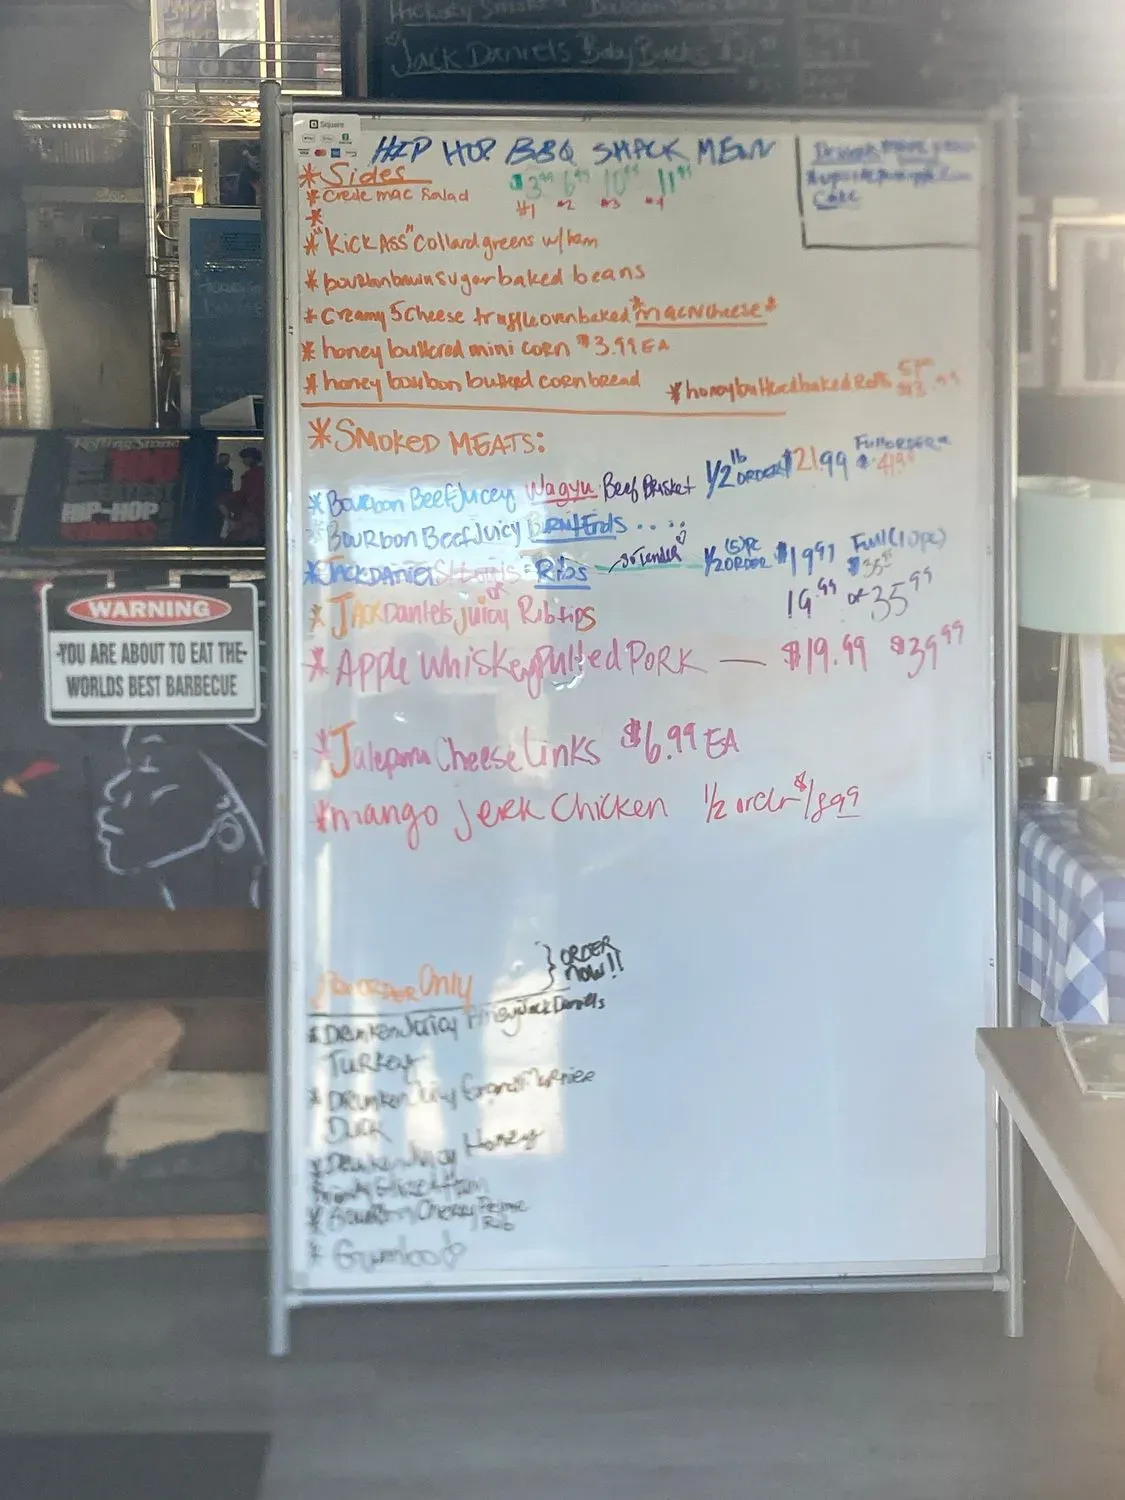 Hickory Smoked
Jack Daniels Baby Backs
Square
HIP HOP BBQ SHACK MENU
*Sides
$3.99 6.99 10.99 11.99
#1 #2 #3 #4
*Creole mac Salad
*
*"KickAss" Collard greens w/ham
*bourbon brown sugar baked beans
*Creamy 5 Cheese truffle oven baked *macNcheese*
*honey buttered mini corn $3.99 EA
*honey bourbon buttered cornbread
*honey buttered baked Rolls
Cake
*SMOKED MEATS:
*Bourbon Beef Juicey Wagyu Beef Brisket 1/2 lb ORDER $21.99 Full ORDER
*Bourbon Beef Juicy Burnt Ends . . . . .
*JACK DANIELS Ribs so tender 1/2 (5) PC ORDER $19.99 Full (10pc) $35.99
*Jack Daniels juicy Rib tips 19.99 or 35.99
*Apple Whiskey Pulled PORK — $19.99 $39.99
*Jalepeno Cheese Links $6.99 EA
*mango jerk Chicken 1/2 order $18.99
ORDER Only } ORDER NOW!!
*Drunken Juicy Honey Jack Daniels
Turkey
*Drunken Juicy Grand Marnier
Duck
*Drunken Juicy Honey
Ham
*Bourbon Cherry Prime
Rib
*Gumbo
WARNING
-YOU ARE ABOUT TO EAT THE-
WORLDS BEST BARBECUE
Rolling Stone
HIP-HOP